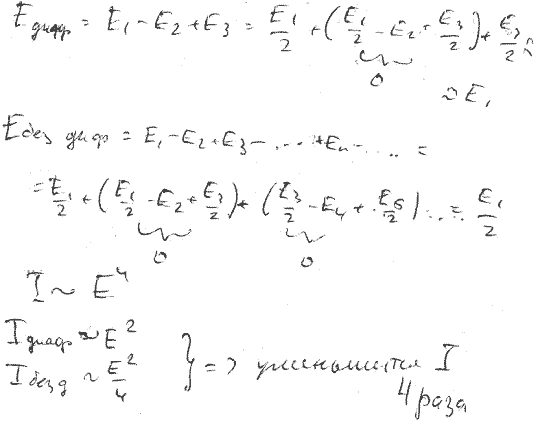 Eдиаф = E₁ - E₂ + E₃ = E₁/2 + (E₁/2 - E₂ + E₃/2) + E₃/2 ≈
0
≈ E₁
Eбез диаф = E₁ - E₂ + E₃ - .... + Eₙ - .... =
= E₁/2 + (E₁/2 - E₂ + E₃/2) + (E₃/2 - E₄ + E₅/2) ... = E₁/2
0 0
I ~ E⁴
Iдиаф ~ E²
Iбез д ~ E²/4 } => уменьшится I
4 раза